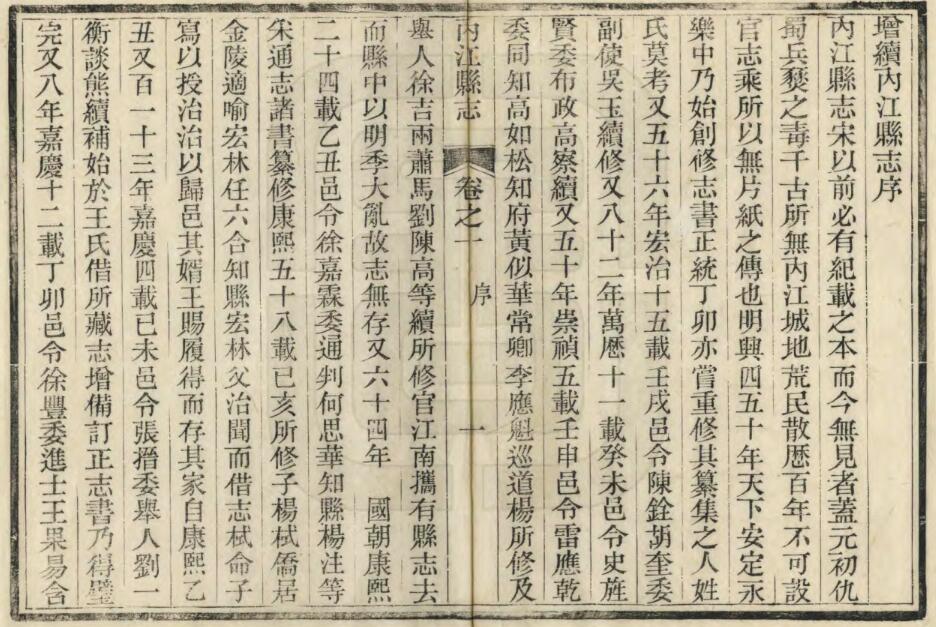 增續內江縣志序
內江縣志宋以前必有紀載之本而今無見者蓋元初仇
蜀兵燹之毒千古所無內江城地荒民散歷百年不可設
官志乘所以無片紙之傳也明興四五十年天下安定永
樂中乃始創修志書正統丁卯亦嘗重修其纂集之人姓
氏莫考又五十六年宏治十五載壬戌邑令陳銓胡奎委
副使吳玉續修又八十二年萬歷十一載癸未邑令史旌
賢委布政高察續又五十年崇禎五載壬申邑令雷應乾
委同知高如松知府黃似華常卿李應魁巡道楊所修及
內江縣志 卷之一 序 一
舉人徐吉兩蕭馬劉陳高等續所修官江南攜有縣志去
而縣中以明季大亂故志無存又六十四年 國朝康熙
二十四載乙丑邑令徐嘉霖委通判何思華知縣楊注等
宋通志諸書纂修康熙五十八載己亥所修子楊栻僑居
金陵適喻宏林任六合知縣宏林父治聞而借志栻命子
寫以授治治以歸邑其婿王賜履得而存其家自康熙乙
丑又百一十三年嘉慶四載己未邑令張搢委舉人劉一
衡談熊續補始於王氏借所藏志增備訂正志書乃得璧
完又八年嘉慶十二載丁卯邑令徐豐委進士王果易含